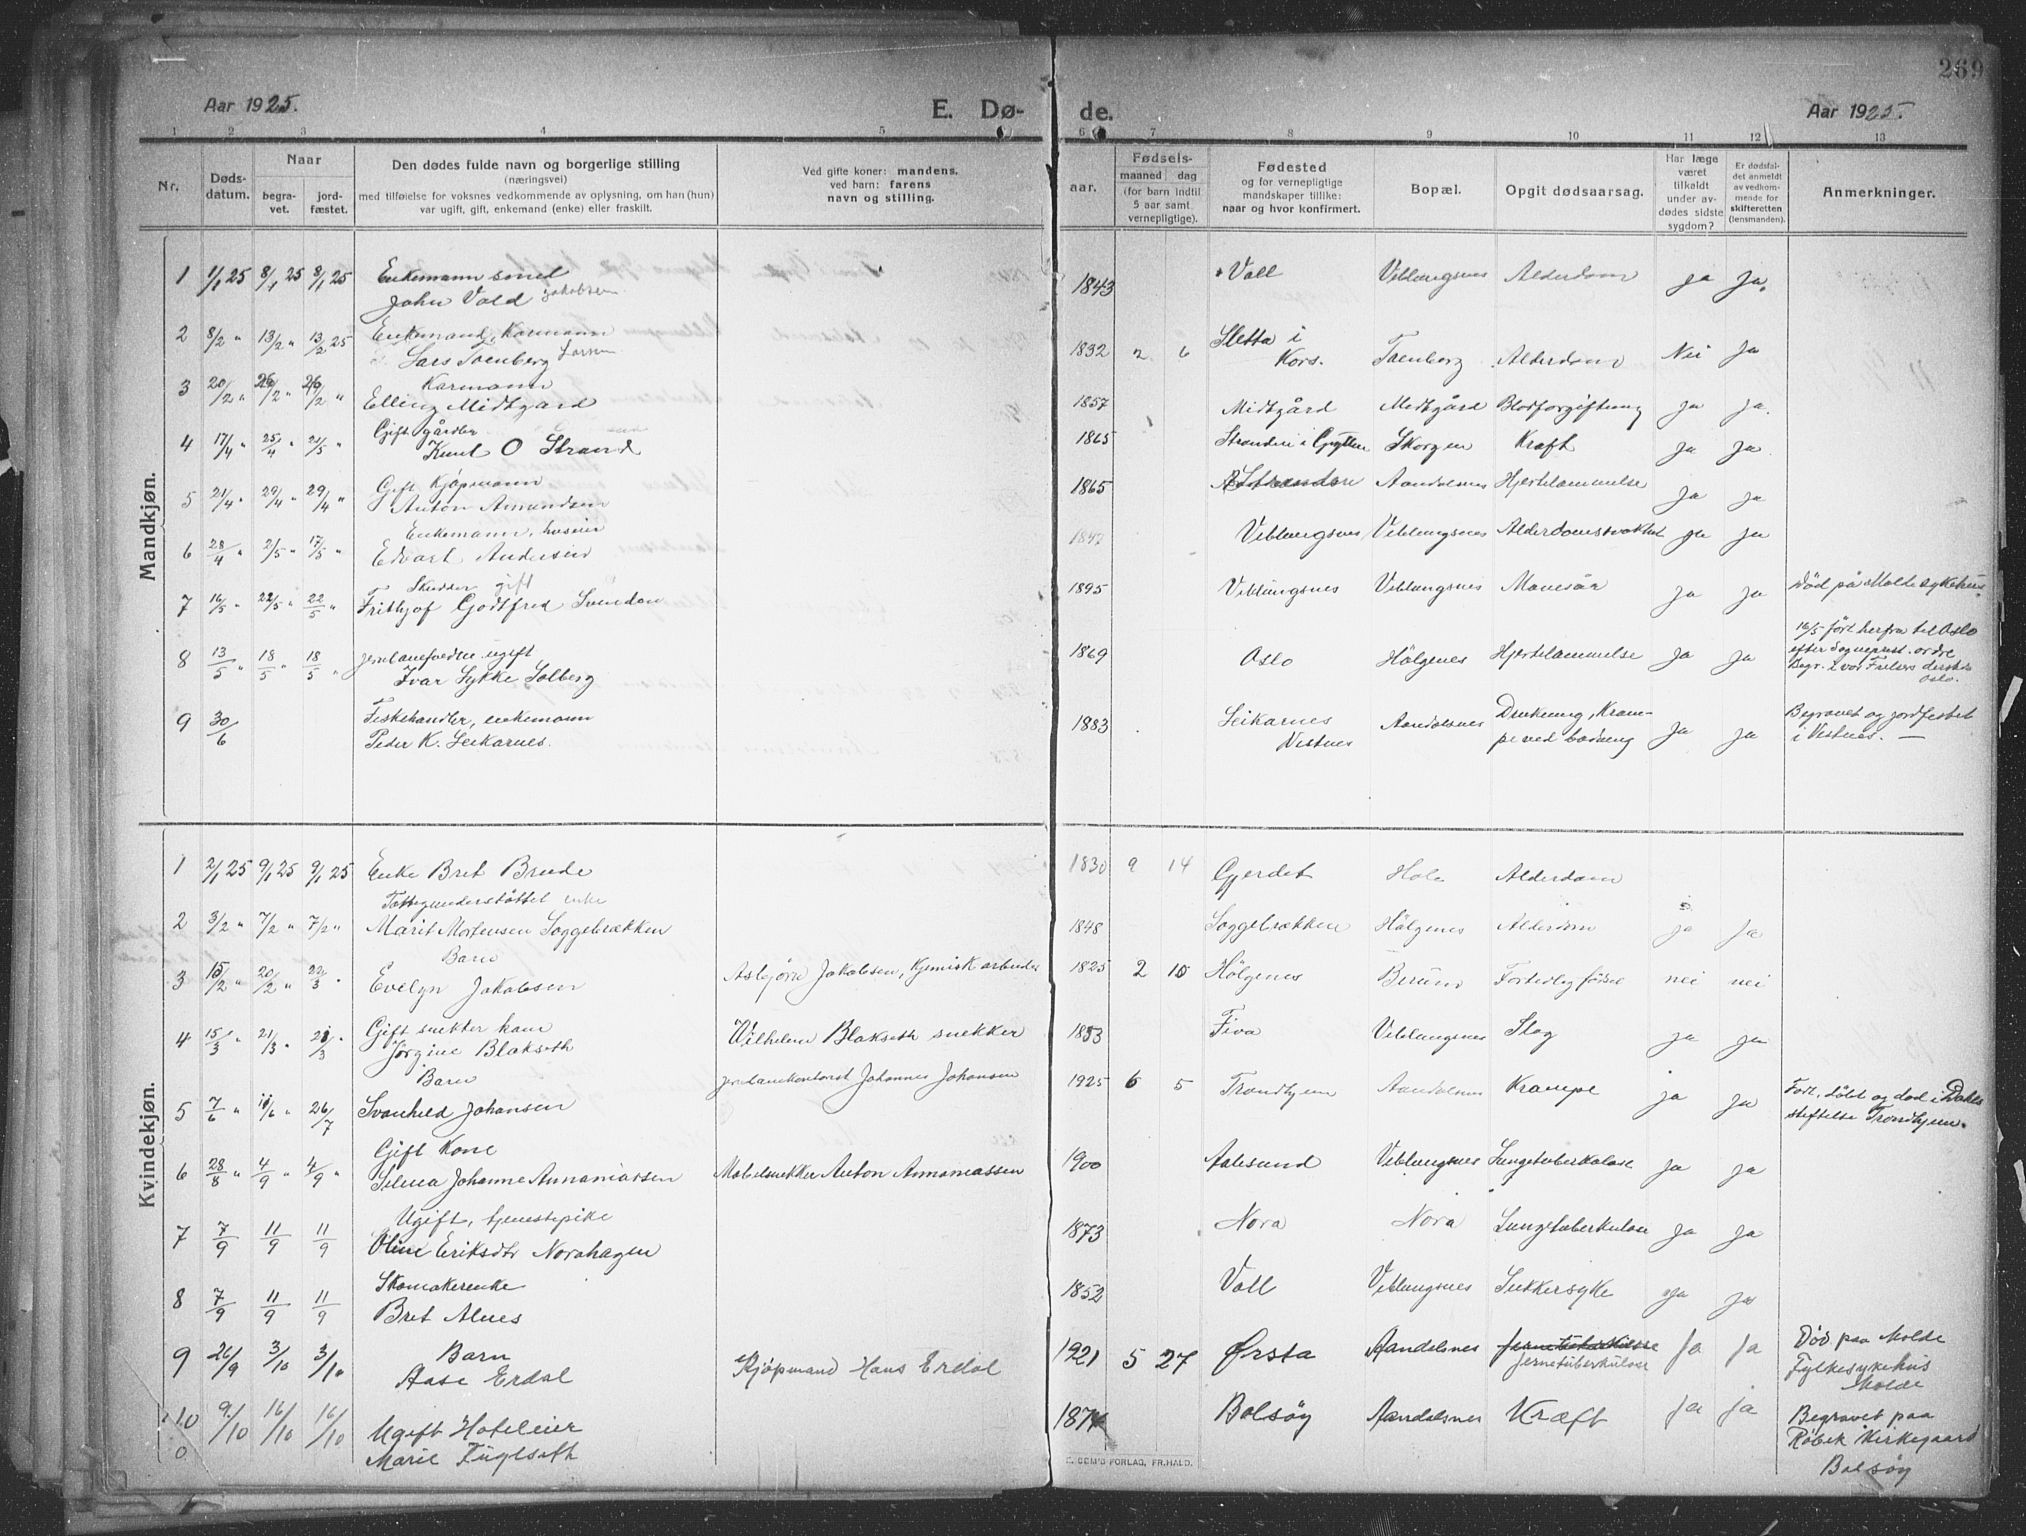 269
Aar 1925. E. Dø- de. Aar 1925.
1 2 3 4 5 6 7 8 9 10 11 12 13
Nr.
Døds-
datum.
Naar
begra-
vet.
jord-
fæstet.
Den dødes fulde navn og borgerlige stilling
(næringsvei)
med tilføielse for voksnes vedkommende av oplysning, om han (hun)
var ugift, gift, enkemand (enke) eller fraskilt.
Ved gifte koner: mandens.
ved barn: farens
navn og stilling.
Fødsels-
aar.
maaned dag
(for barn indtil
5 aar samt
vernepligtige).
Fødested
og for vernepligtige
mandskaper tillike:
naar og hvor konfirmert.
Bopæl.
Opgit dødsaarsag.
Har læge
været
tilkaldt
under av-
dødes sidste
sygdom?
Er dødsfal-
det anmeldt
av vedkom-
mende for
skifteretten
(lensmanden).
Anmerkninger.
Mandkjøn.
1 1/1 25 8/1 25 8/1 25 Enkemann smed
John Vold Jakobsen 1843 Voll Veblungsnes Alderdom ja Ja.
2 8/2 " 13/2 " 13/2 25 Enkemand, Kaarmann
Lars Soenberg Larsen 1832 2 6 Sletta i
Kors. Alderdom Nei Ja
3 20/2 " 26/2 " 26/2 " Kaarmann
Elling Midtgård 1857 Midtgård Midtgård Blodforgiftning Ja Ja.
4 17/4 " 25/4 " 21/5 " Gift gårdbr
Knut O Strand 1865 i Grytten Skorgen Kræft Ja Ja
5 21/4 " 29/4 " 29/4 " Gift Kjøpmann
Anton Amundsen 1865 Aandalsnes Hjertelammelse Ja Ja
6 28/4 " 2/5 " 17/5 " Enkemann, huseier
Edvart Andersen 1847 Veblungsnes Veblungsnes Alderdomssvakhet ja Ja
7 16/5 " 22/5 " 22/5 " Skredder gift
Frithjof Godtfred Svendsen 1895 Veblungsnes Veblungsnes Mavesår Ja Ja Død på Molde sykehus.
8 13/5 " 18/5 " 18/5 " ugift
Ivar Lykke Solberg 1869 Oslo Hólgenes Hjertelammelse Ja Ja 16/5 ført herfra til Oslo
efter Sogneprest. ordre
Begr. i vor Frelsers
Oslo.
9 30/6 Fiskehandler, enkemann
Peder K. Leikarnes. 1883 Leikarnes
Vestnes Aandalsnes Drukning, Kram-
pe ved badning Ja Ja Begravet og jordfestet
i Vestnes. —
Kvindekjøn.
1 2/1 25 9/1 25 9/1 25 Enke Bret Brude 1830 9 14 Gjerdet Hole Alderdom
2 3/2 " 7/2 " 7/2 " Fattigunderstøttet enke
Marit Mortensen Soggebrækken 1848 Soggebrækken Hólgenes Alderdom ja Ja
3 15/2 " 20/2 " 22/3 " Barn
Evelyn Jakobsen Asbjørn Jakobsen, kjemisk arbeider 1825 2 10 Hólgenes Berum Fortidlig fødsel nei nei
4 15/3 " 21/3 " 21/3 " Gift snekker kone
Jørgine Blakseth Wilhelm Blakseth snekker 1853 Fiva Veblungsnes Slag Ja Ja
5 7/6 " 11/6 " 26/7 Barn
Svanhild Johansen Jernbanekontorist Johannes Johansen 1925 6 5 Trondhjem Aandalsnes Krampe ja Ja Født, døbt og død i Dahls
stiftelse Trondhjem.
6 28/8 " 4/9 " 4/9 " Gift Kone
Selma Johanne Annaniassen Møbelsnekker Anton Annaniassen 1900 Aalesund Veblungsnes Lungetuberkulose Ja Ja
7 7/9 11/9 11/9 Ugift, tjenestepike
Oline Eriksdtr Norahagen 1873 Nora Nora Lungetuberkulose Ja Ja
8 7/9 11/9 11/9 Skomakerenke
Bret Alnes 1852 Voll Veblungsnes Sukkersyke Ja Ja
9 26/9 3/10 3/10 Barn
Aase Erdal Kjøpmand Hans Erdal 1921 5 27 Ørsta Aandalsnes
Jernetuberkulose Ja Ja Død paa Molde
Fylkesykehus
Molde
10 9/10 16/10 16/10 Ugift Hoteleier
Marie Fuglseth 1874 Bolsøy Aandalsnes Kræft Ja Ja Begravet paa
Røbek Kirkegaard
Bolsøy
0
E. SEM'S FORLAG, FR.HALD.